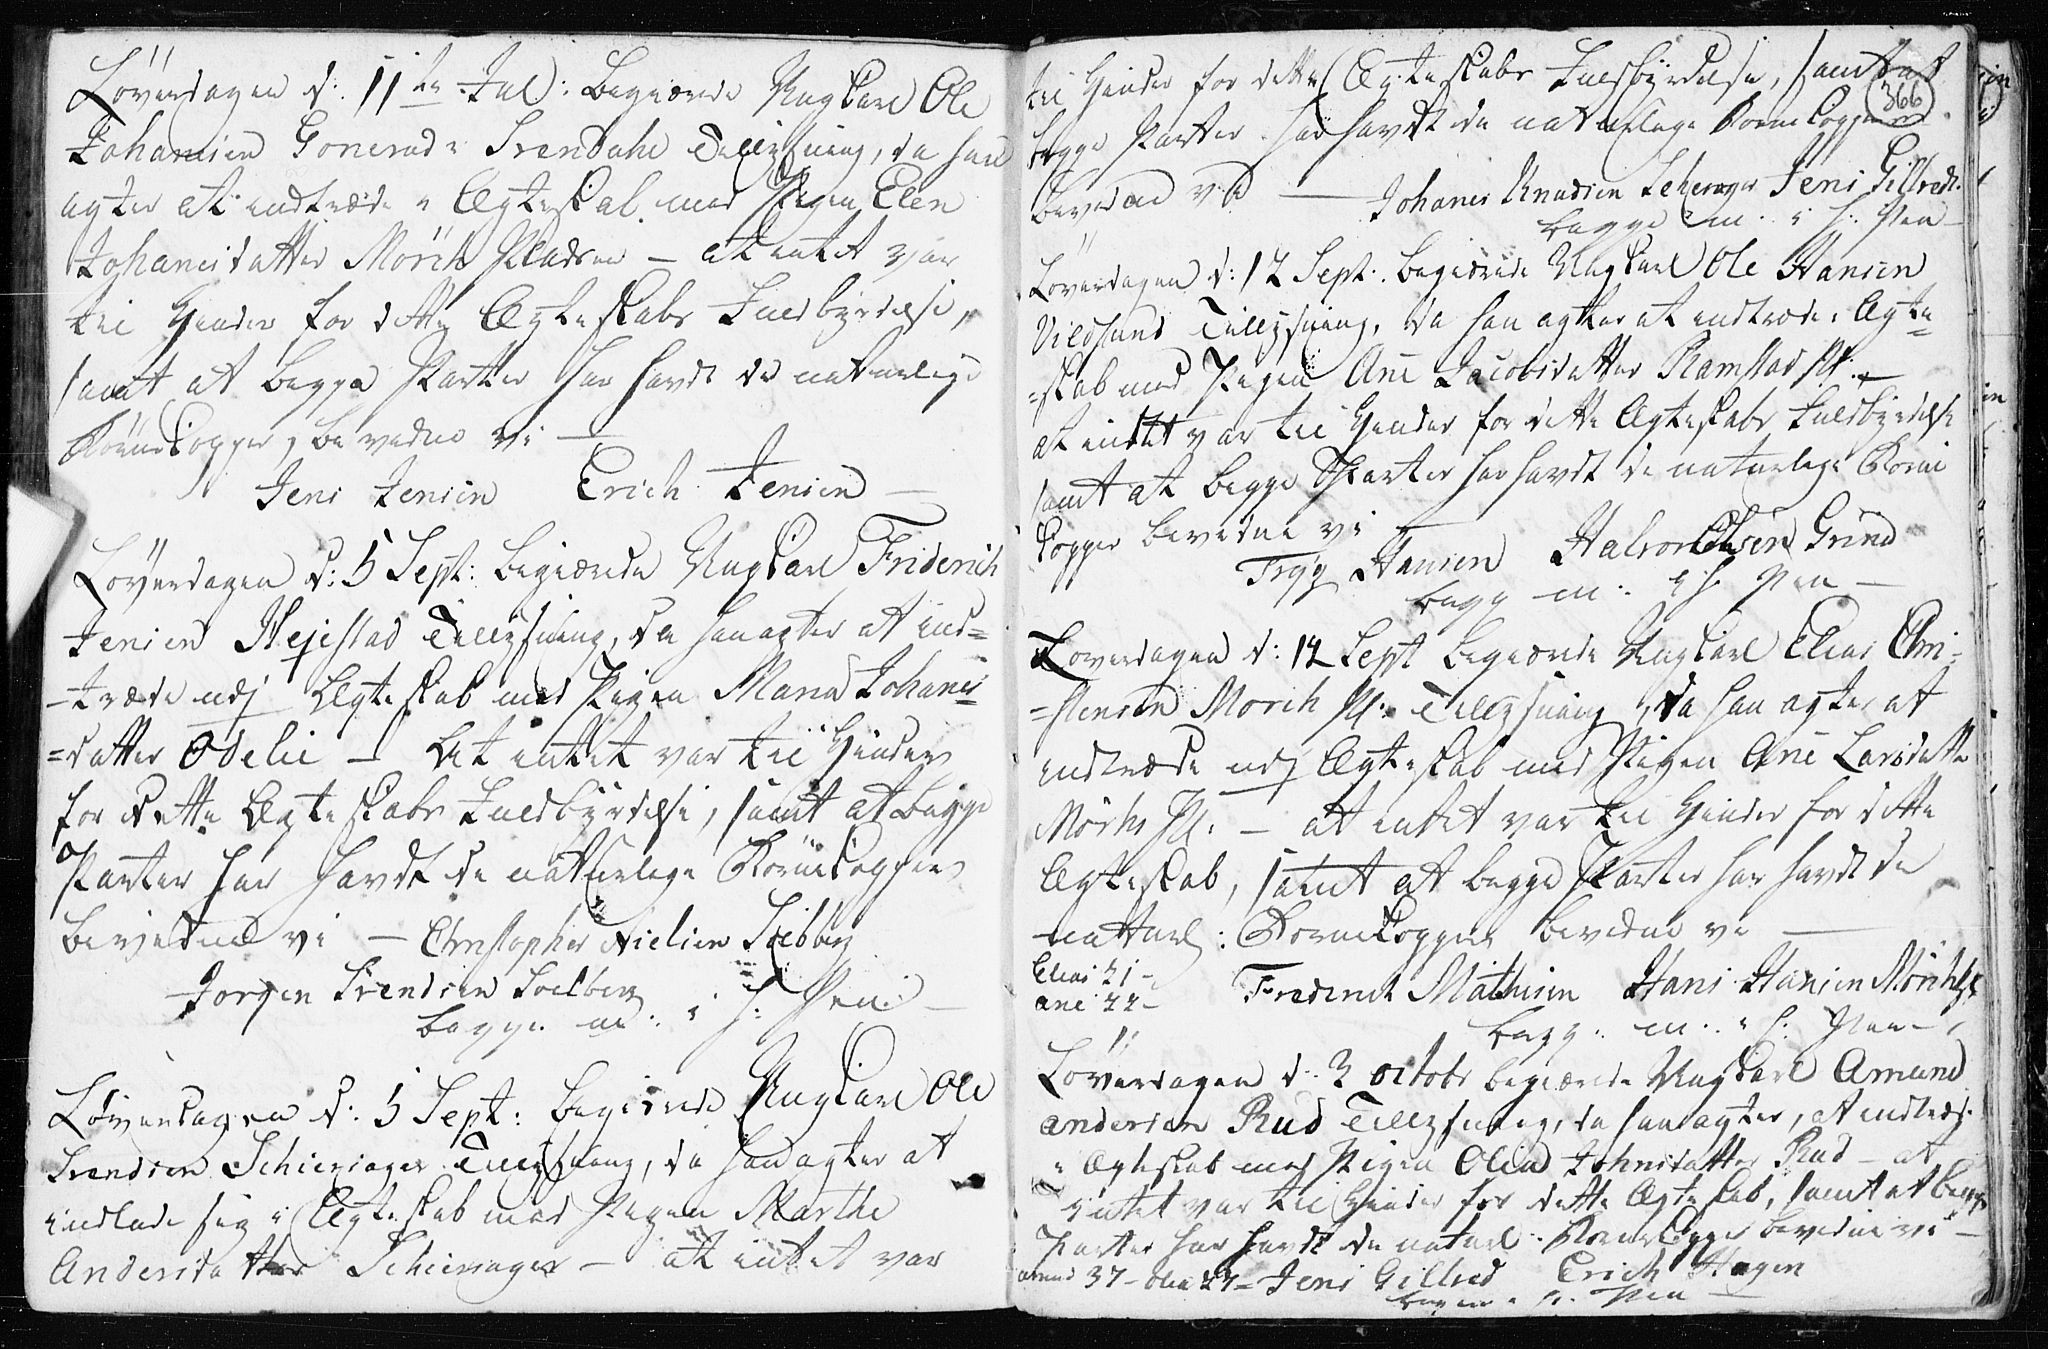 Løverdagen d: 11te Jul: begiærede Ungkarl Ole
Johannesen Gonerud Svendahl Tillysning, da han
agter at indtræde i Ægteskab med Pigen Elen
Johannesdatter Mörch Pladsen — at intet var
til Hinder for dette Ægteskabs Fuldbyrdelse,
samt at begge Parter har havdt de naturlige
Börnekopper, bevidne vi —
Jens Jensen Erich Jensen —
Løverdagen d: 5 Sept: begiærede Ungkarl Friderich
Jensen Hejestad Tillysning, da han agter at ind=
=træde udj Ægteskab med Pigen Maria Johannes=
=datter Odelie — At intet var til Hinder
for dette Ægteskabs Fuldbyrdelse, samt at begge
Parter har havdt de naturlige Börnekopper
bevidne vi — Christopher Nielsen Solberg
Jorgen Svendsen Solberg
begge m: i h: Pen: —
Løverdagen d: 5 Sept: begiærede Ungkarl Ole
Svendsen Schieriager Tillysning, da han agter at
indlade sig i Ægteskab med Pigen Marthe
Andersdatter Schieriager — at intet var
366
til Hinder for dette Ægteskabs Fuldbyrdelse, samt at
begge Parter har havdt de naturlige Bornekopper
bevidne vi — Johanes Knudsen Jens Gillred
begge m: i h: Pen —
Løverdagen d: 12 Sept: begiærede Ungkarl Ole Hansen
Vildsund Tillysning, da han agter at indtræde i Ægte
=skab med Pigen Ane Jacobsdatter Ramstad Pl: —
at intet var til Hinder for dette Ægteskabs Fuldbyrdelse
samt at begge Parter har havdt de naturlige Borne
kopper bevidne vi —
Tryg Hansen Halvor Olsen Grind
begge m: i h: Pen —
Løverdagen d: 12 Sept begiærede Ungkarl Elias Chri=
=stensen Morch Pl: Tillysning, da han agter at
indtræde udj Ægteskab med Pigen Ane Larsdatter
Mörks Pl: — at intet var til Hinder for dette
Ægteskab, samt at begge Parter har havdt de
naturl: Bornekopper bevidne vi —
Elias 31 —
ane 22 —
Frederich Mathisen Hans Hansen Mörch
begge: m: i h: Pen —
Løverdagen d: 3 octobr begiærede Ungkarl Amund
andersen Rud Tillysning, da han agter, at indtræde
i Ægteskab med Pigen Olea Johnsdatter Rud — at
intet var til Hinder for dette Ægteskab, samt at begge
Parter har havdt de naturl: Bornekopper bevidne vi —
amund 37 — Olea 27 — Jens Gillred Erich Hagen
begge m: i h: Pen —